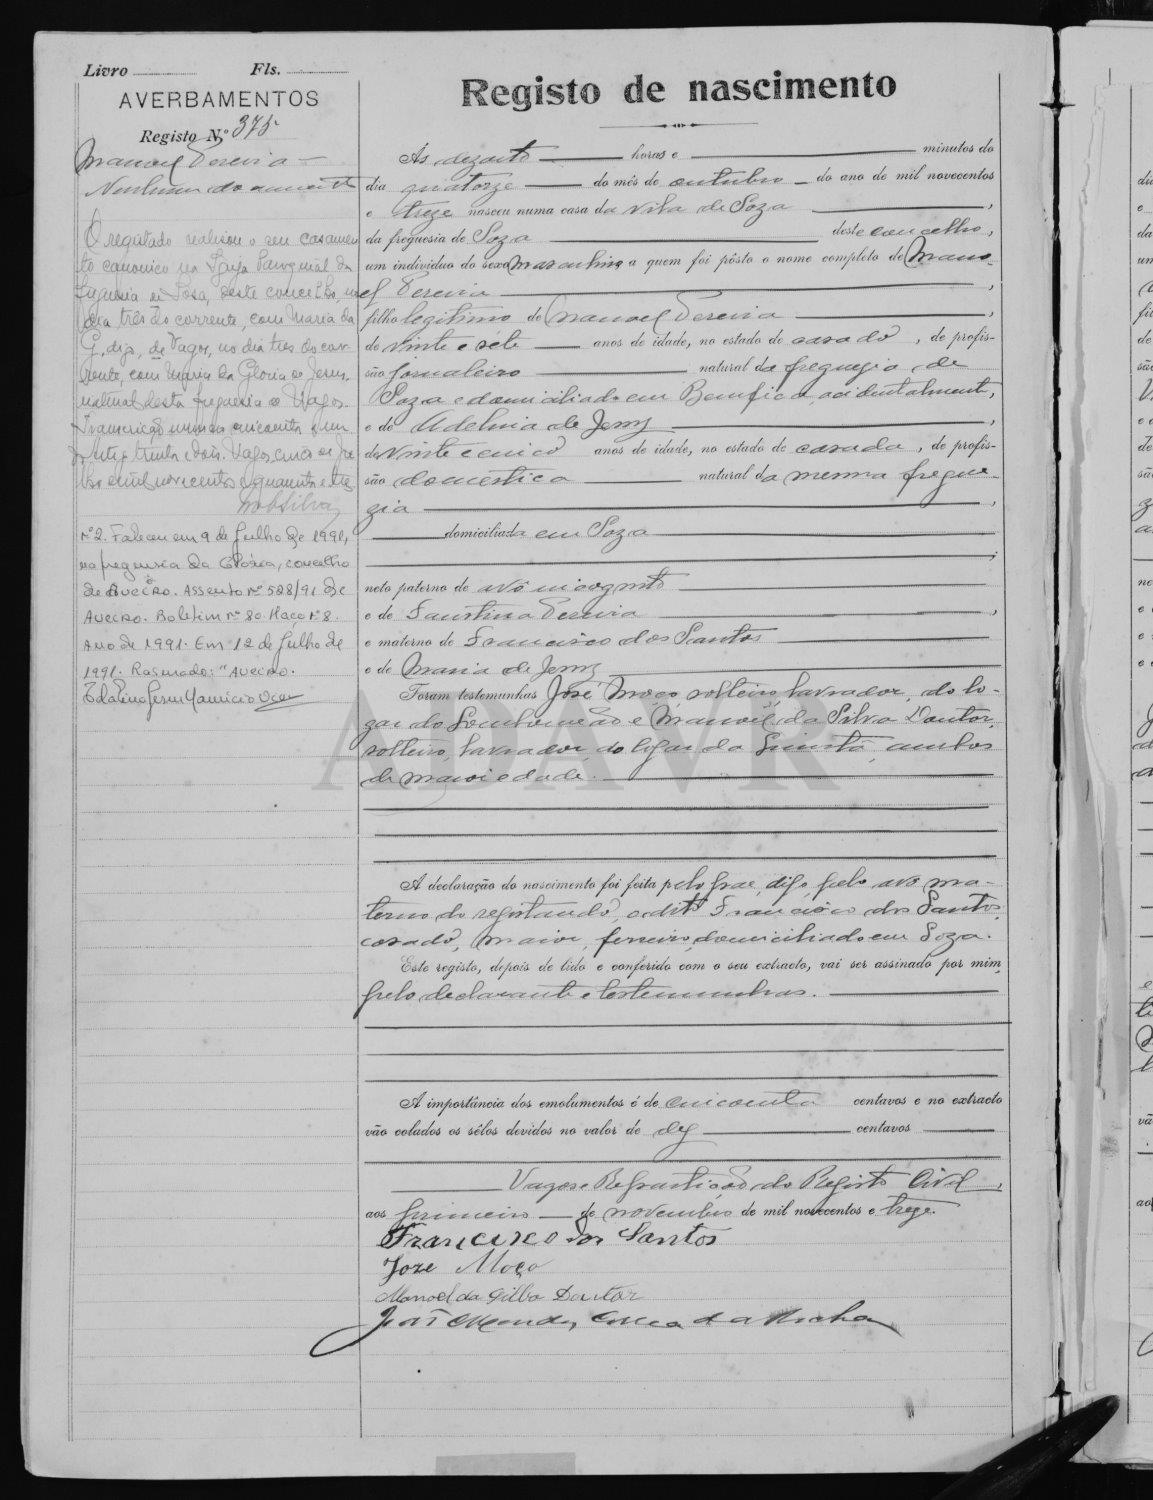 Livro Fls.
AVERBAMENTOS
Registo N.º 375
Manoel Pereira
Nenhum documento
O registado realisou o seu casamen
to canonico na Igreja Paroquial da
freguesia de Sosa, deste concelho, no
dia três do corrente, com Maria da
G, digo, de Vagos, no dia tres do cor
rente, com Maria da Gloria de Jesus,
natural desta freguesia de Vagos.
Transcrição numero cincoenta e um
trinta e dois. Vagos, cinco de
mil novecentos e quarenta e tres
Nº 2. Faleceu em 9 de Julho de 1991,
na freguesia da Glória, concelho
de Aveiro. Assento nº 528/91 de
Aveiro. Boletim nº 80. Maço nº 8.
Ano de 1991. Em 12 de Julho de
1991. Rasurado: "Aveiro.
Registo de nascimento
Ás dezoito horas e minutos do
dia quatorze do mês de outubro do ano de mil novecentos
e treze nasceu numa casa da vila de Soza,
da freguesia de Soza deste concelho,
um individuo do sexo masculino a quem foi pôsto o nome completo de Mano-
el Pereira,
filho legitimo de Manoel Pereira,
de vinte e sete anos de idade, no estado de casado, de profis-
são jornaleiro natural da freguezia de
Soza e domiciliado em Bemfica, acidentalmente,
e de Adelina de Jesus,
de vinte e cinco anos de idade, no estado de casada, de profis-
são domestica natural da mesma fregue-
zia,
domiciliada em Soza
;
neto paterno de avô incognito
e de Faustina Pereira,
e materno de Francisco dos Santos
e de Maria de Jesus
Foram testemunhas José Moço, solteiro, lavrador, do lo-
gar do e Manoel da Silva Doutor,
solteiro, lavrador, do logar da Quinta, ambos
de maior edade.
ADAVR
A declaração do nascimento foi feita pelo pae, digo, pelo avô ma-
terno do registando, o dito Francisco dos Santos,
casado, maior, ferreiro, domiciliado em Soza.
Este registo, depois de lido e conferido com o seu extracto, vai ser assinado por mim,
pelo declarante e testemunhas.
A importância dos emolumentos é de cincoenta centavos e no extracto
vão colados os sêlos devidos no valor de dez centavos
Vagos e Repartição do Registo Civil,
aos primeiro de novembro de mil novecentos e treze.
Francisco dos Santos
Joze Moço
Manoel da Silva Doutor
João Mendes Correa da Rocha